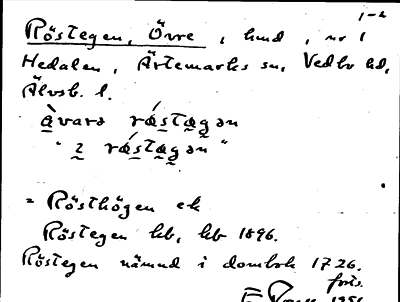 1-2
Röstegen, Övre, hmd, nr 1
Hedalen, Ärtemarks sn, Vedbo hd,
Älvsb. l.
àvarə rǽstægən
" 2 rǽstægən "
= Rösthögen ek
Röstegen kb, kb 1896.
Röstegen nämnd i dombok 1726.
forts.